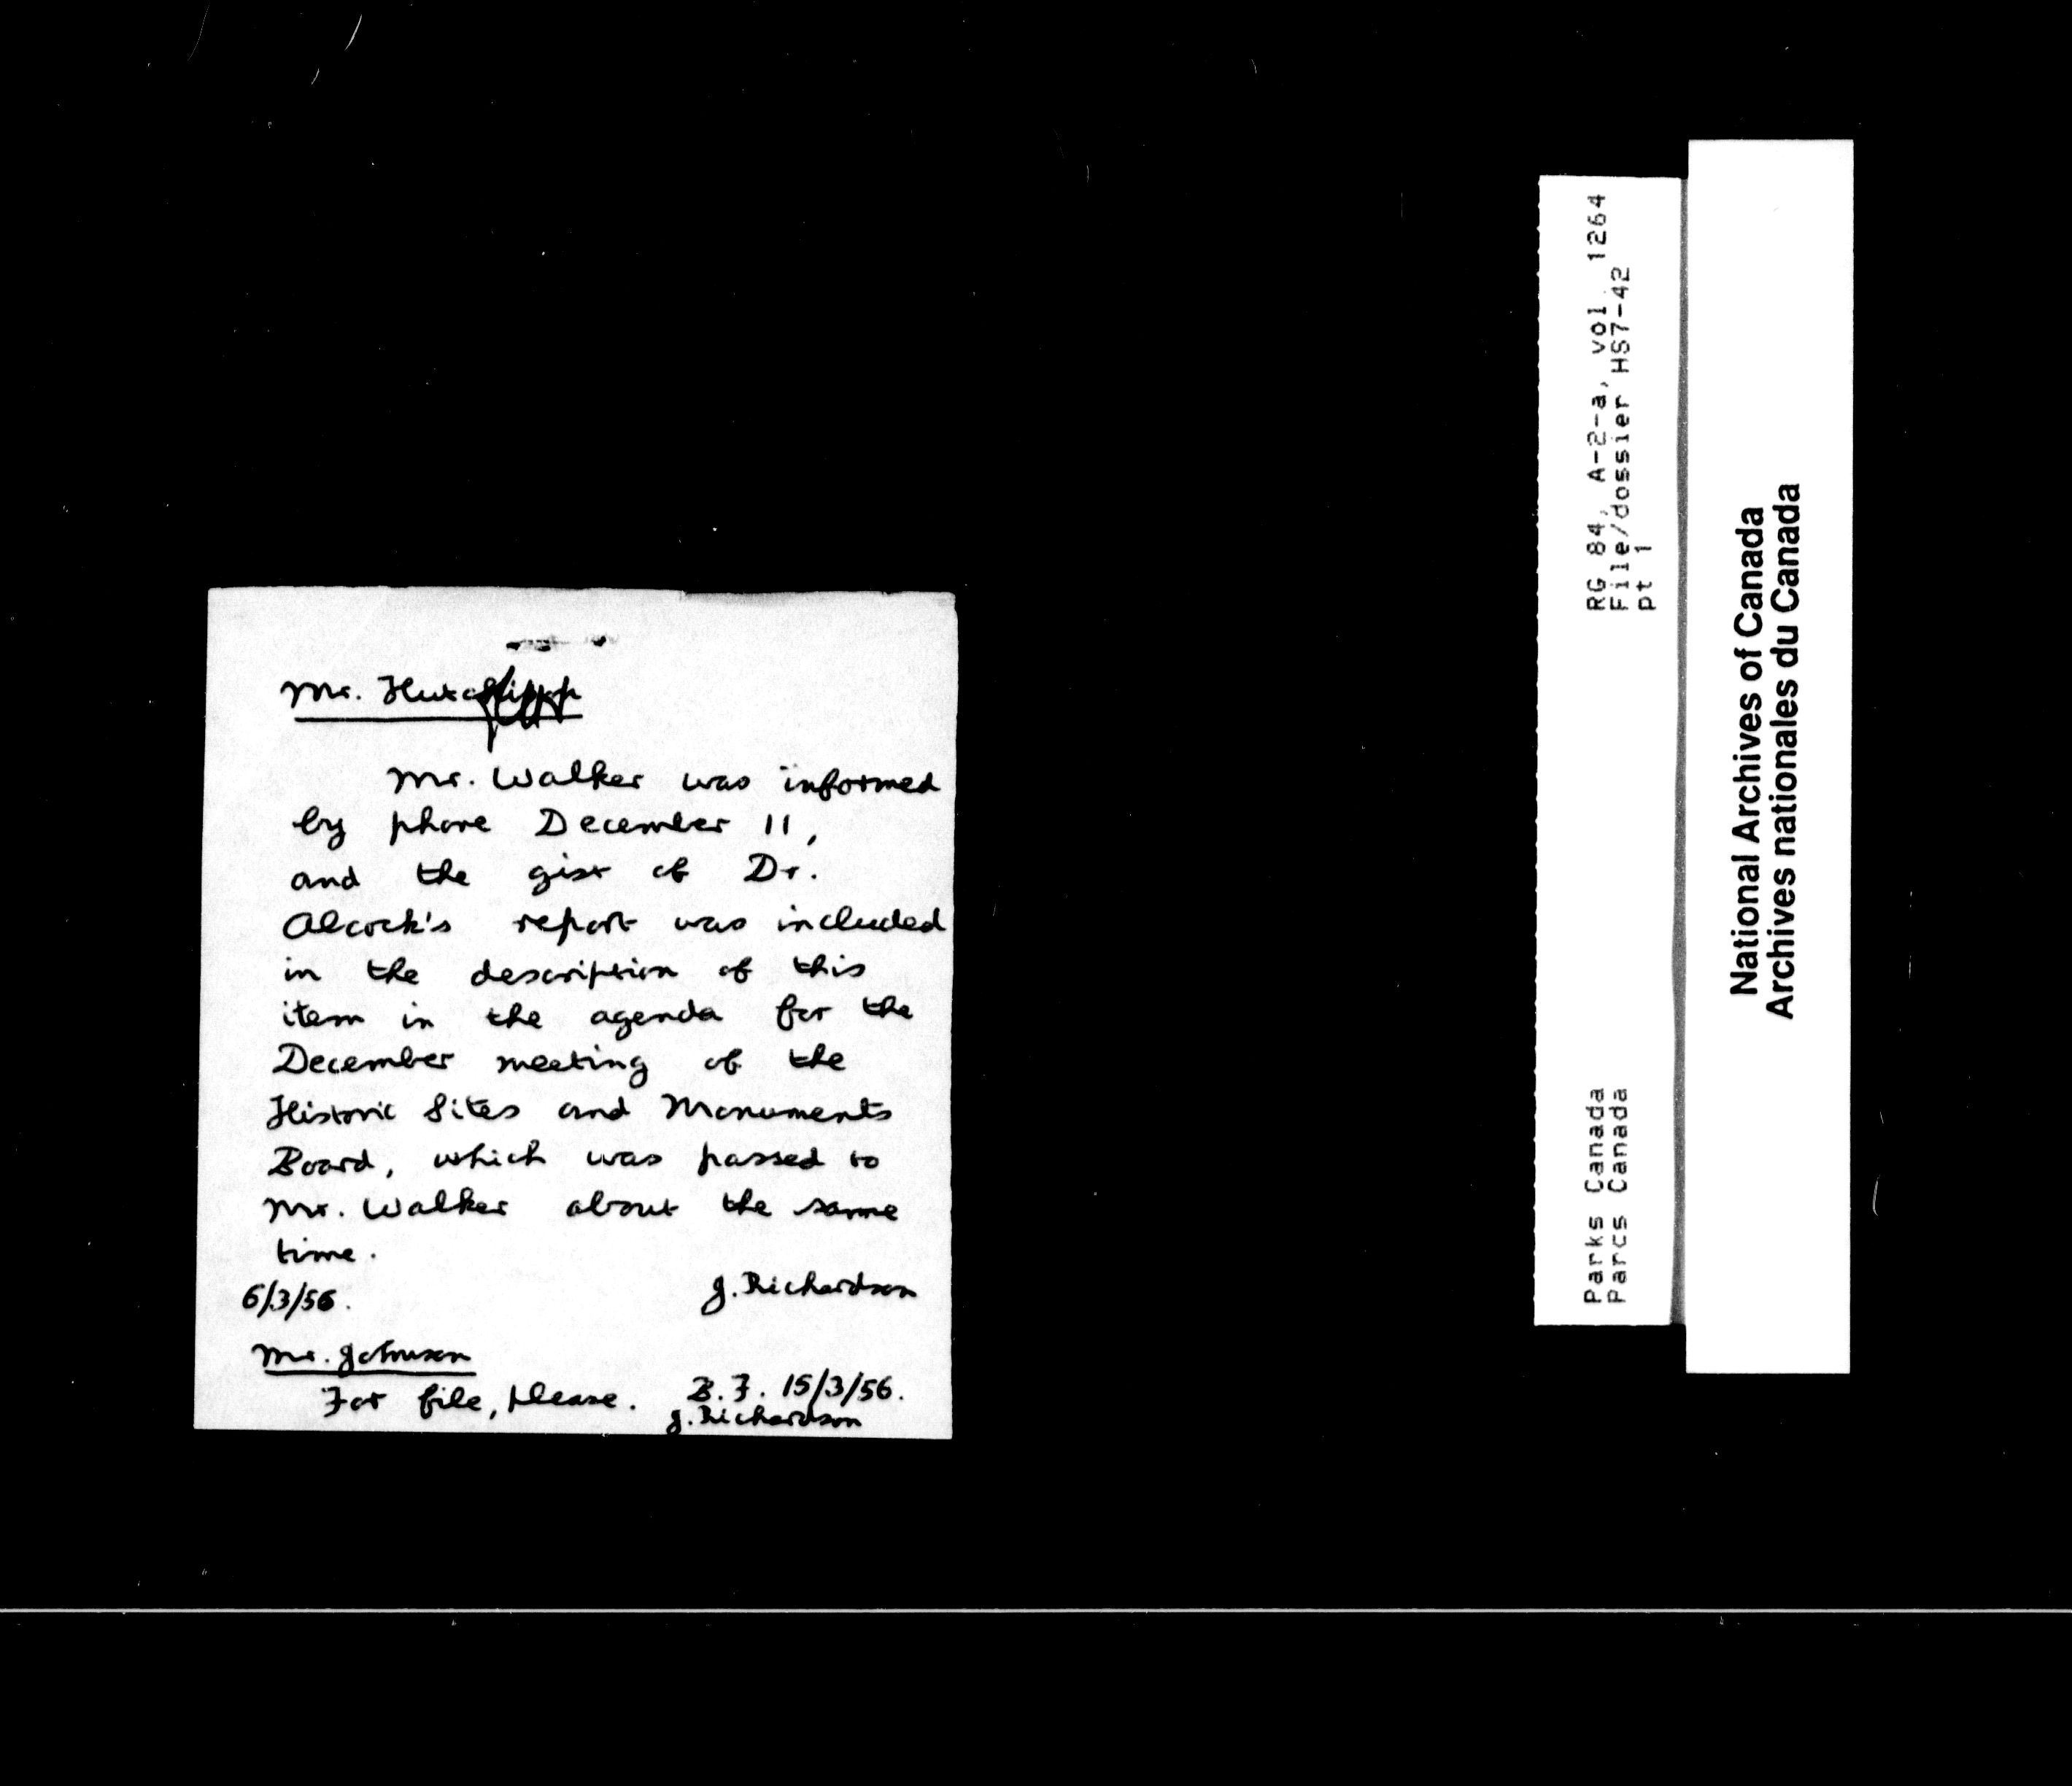 Mr. Hutchison
Mr. Walker was informed
by phone December 11,
and the gist of Dr.
Alcock's report was included
in the description of this
item in the agenda for the
December meeting of the
Historic Sites and Monuments
Board, which was passed to
Mr. Walker about the same
time.
J. Richardson
6/3/56.
Mr. Johnson
For file, please.
B.F. 15/3/56.
J. Richardson
RG 84, A-2-a, vol. 1264
File/dossier HS7-42
pt 1
Parks Canada
Parcs Canada
National Archives of Canada
Archives nationales du Canada